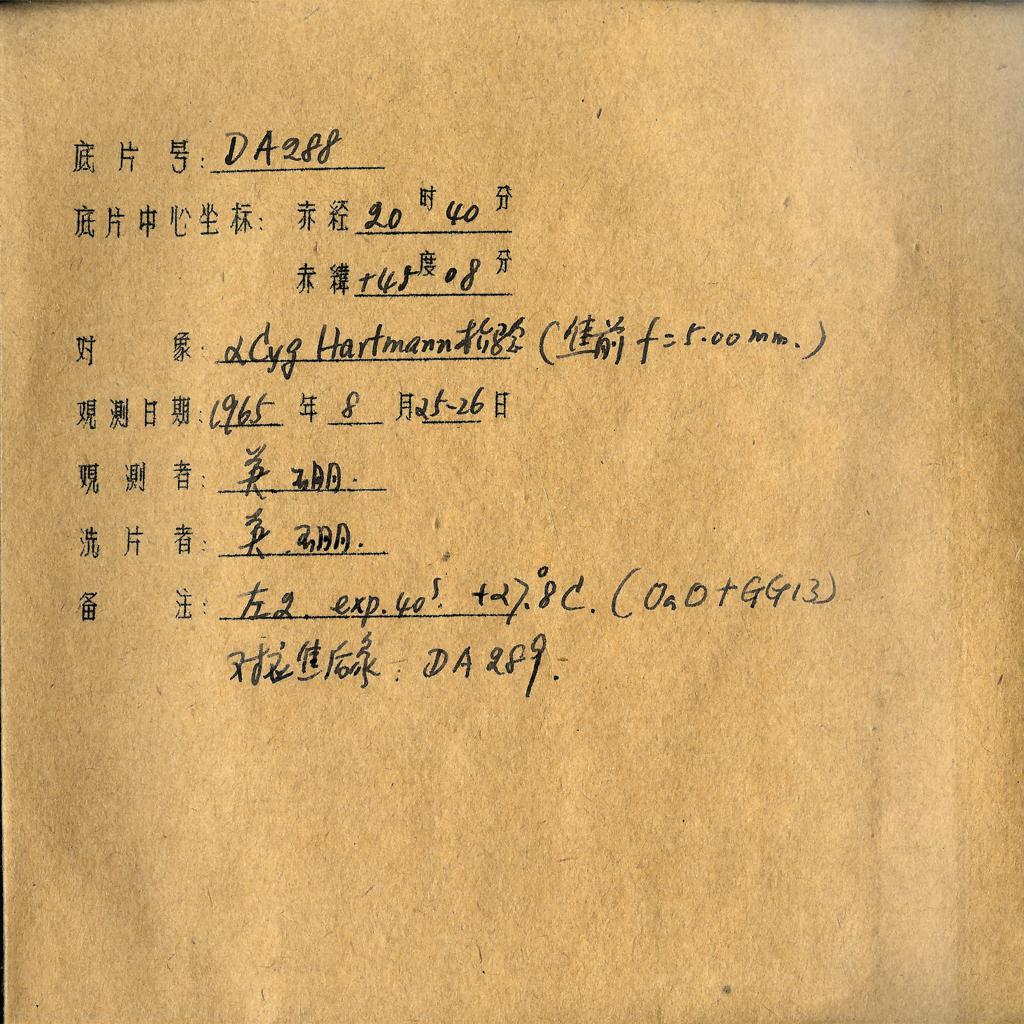 底片号: DA288
底片中心坐标: 赤経 20 时 40 分
赤緯 +45 度 08 分
对象: αCyg Hartmann检验 (焦前 f=5.00mm.)
观测日期: 1965 年 8 月 25-26 日
观测者: 英 珊.
洗片者: 英 珊.
备注: 左2. exp.40ˢ. +27.°8C. (OaO+GG13)
对应焦后 : DA289.